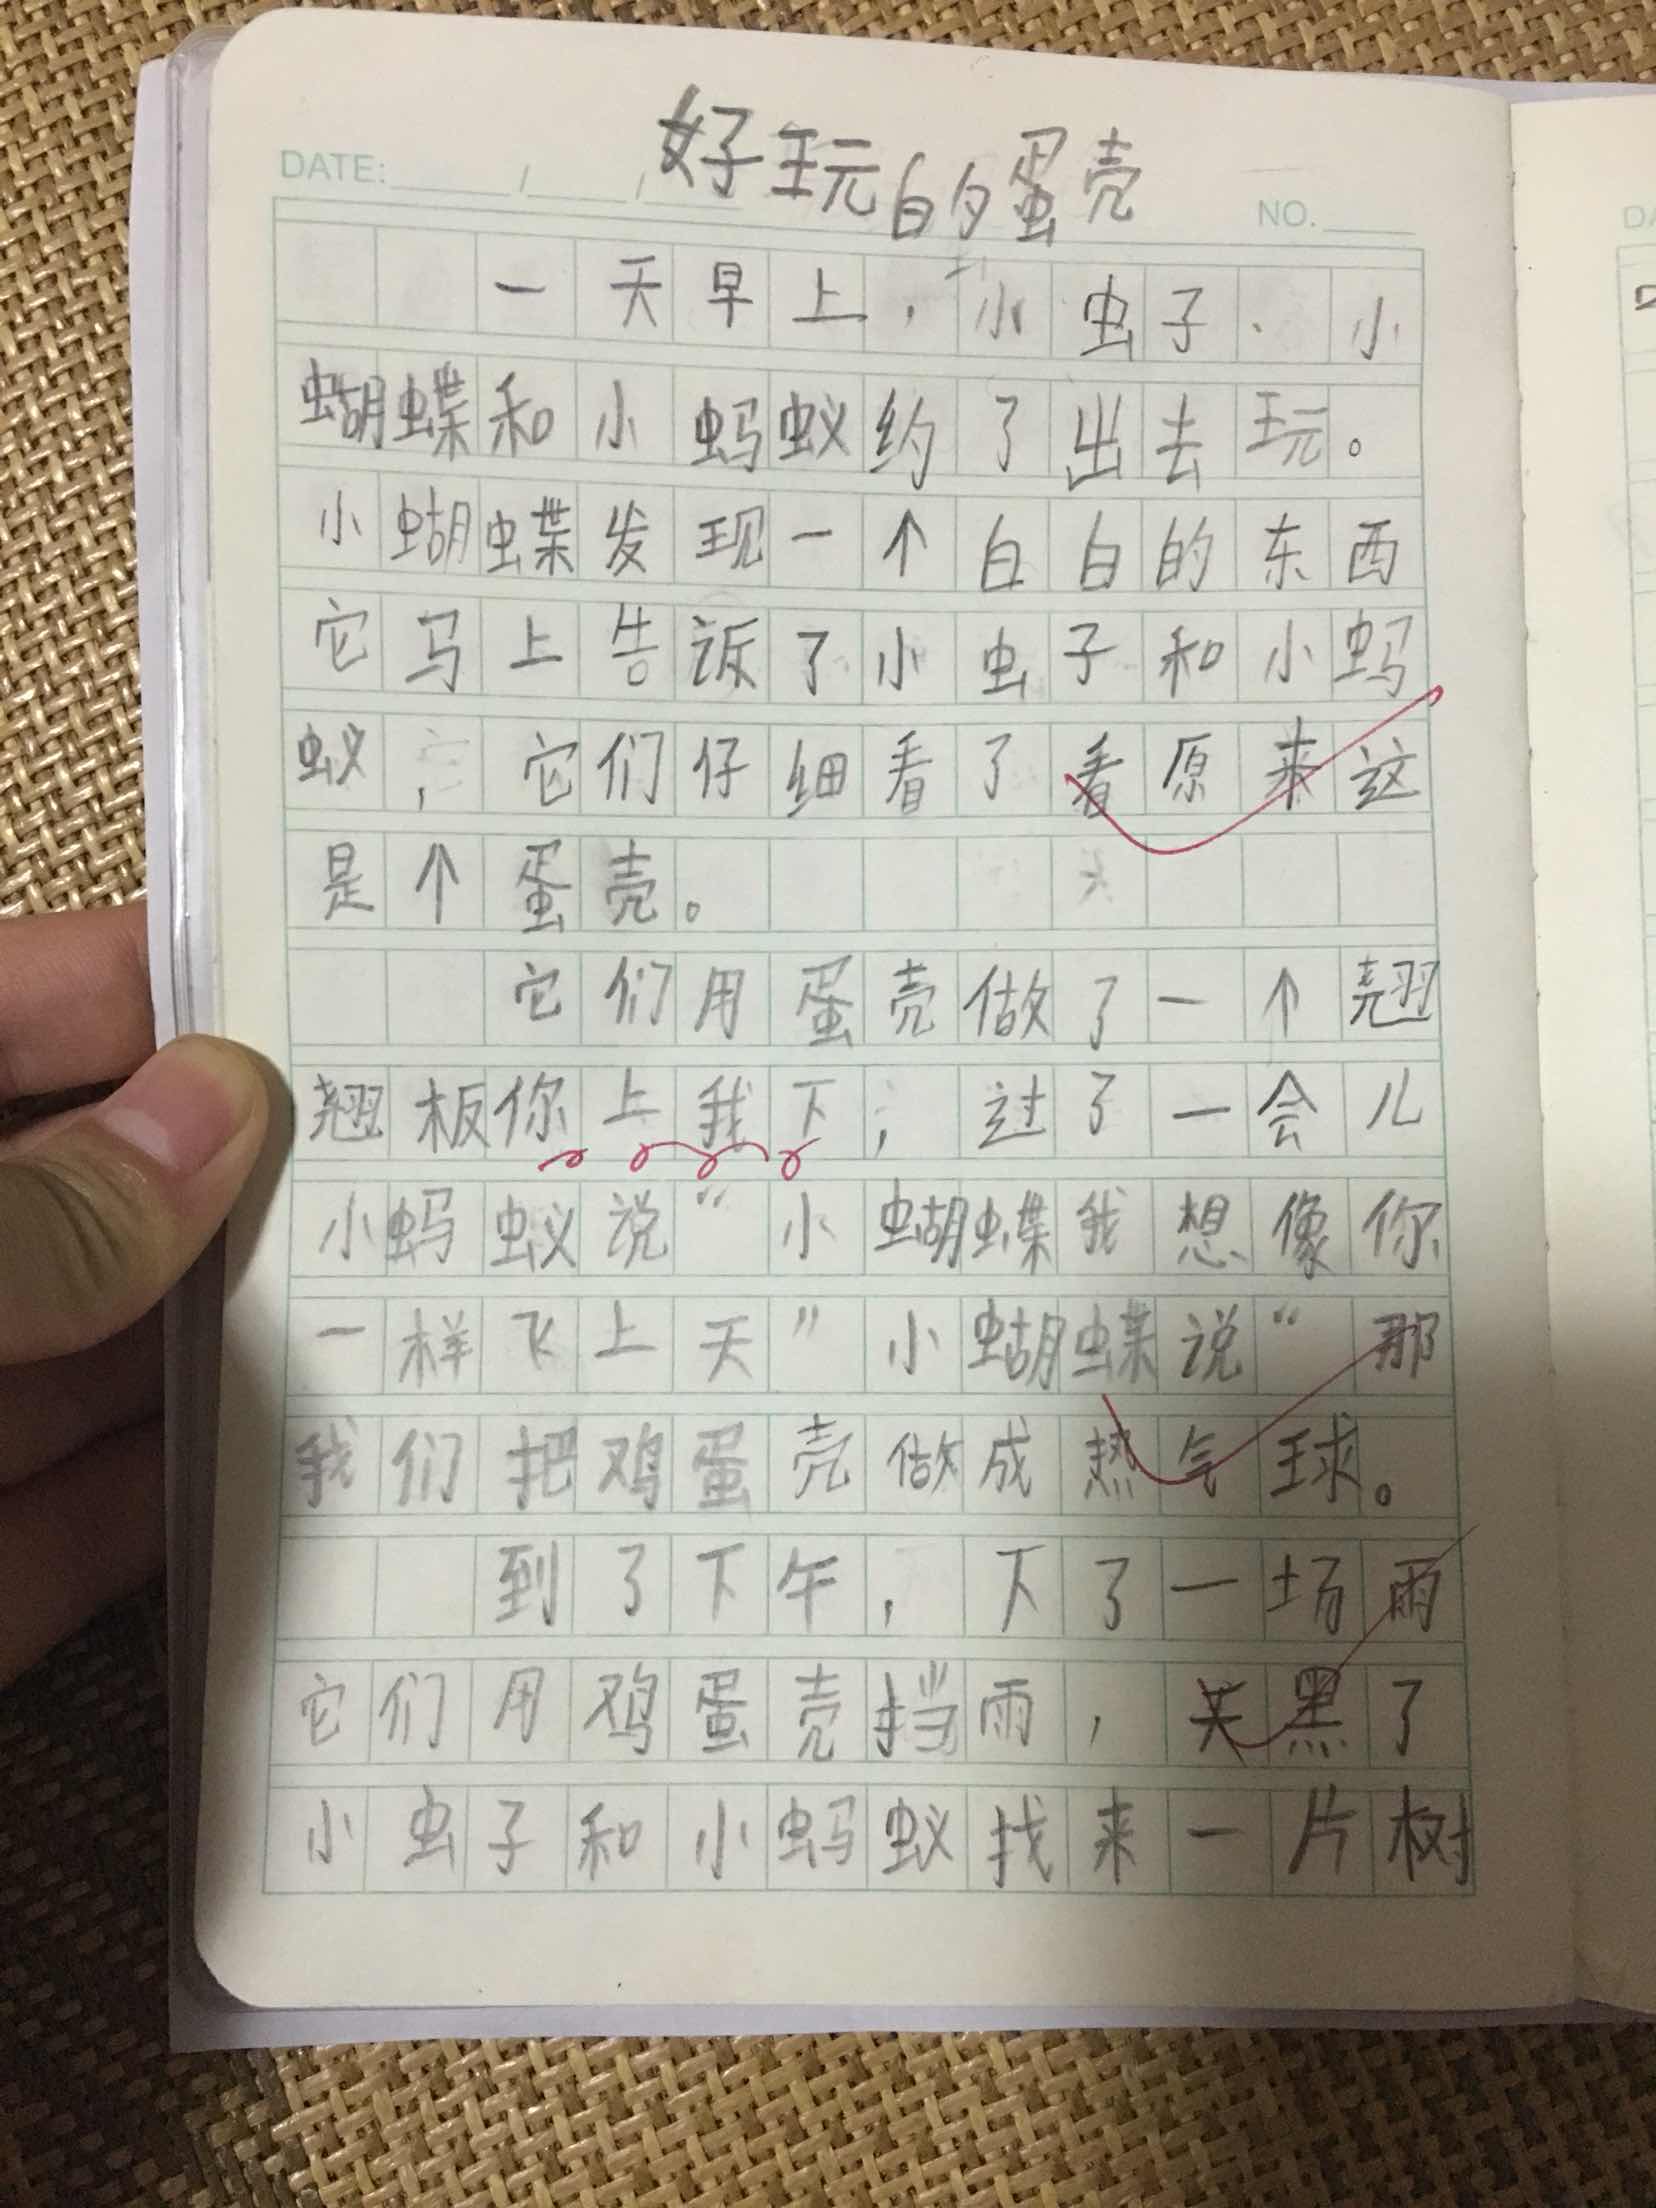 好玩的蛋壳
DATE: / /
NO.
一天早上，小虫子、小
蝴蝶和小蚂蚁约了出去玩。
小蝴蝶发现一个白白的东西
它马上告诉了小虫子和小蚂
蚁，它们仔细看了看原来这
是个蛋壳。
它们用蛋壳做了一个翘
翘板你上我下；过了一会儿
小蚂蚁说“小蝴蝶我想像你
一样飞上天”小蝴蝶说“那
我们把鸡蛋壳做成热气球。
到了下午，下了一场雨
它们用鸡蛋壳挡雨，天黑了
小虫子和小蚂蚁找来一片树